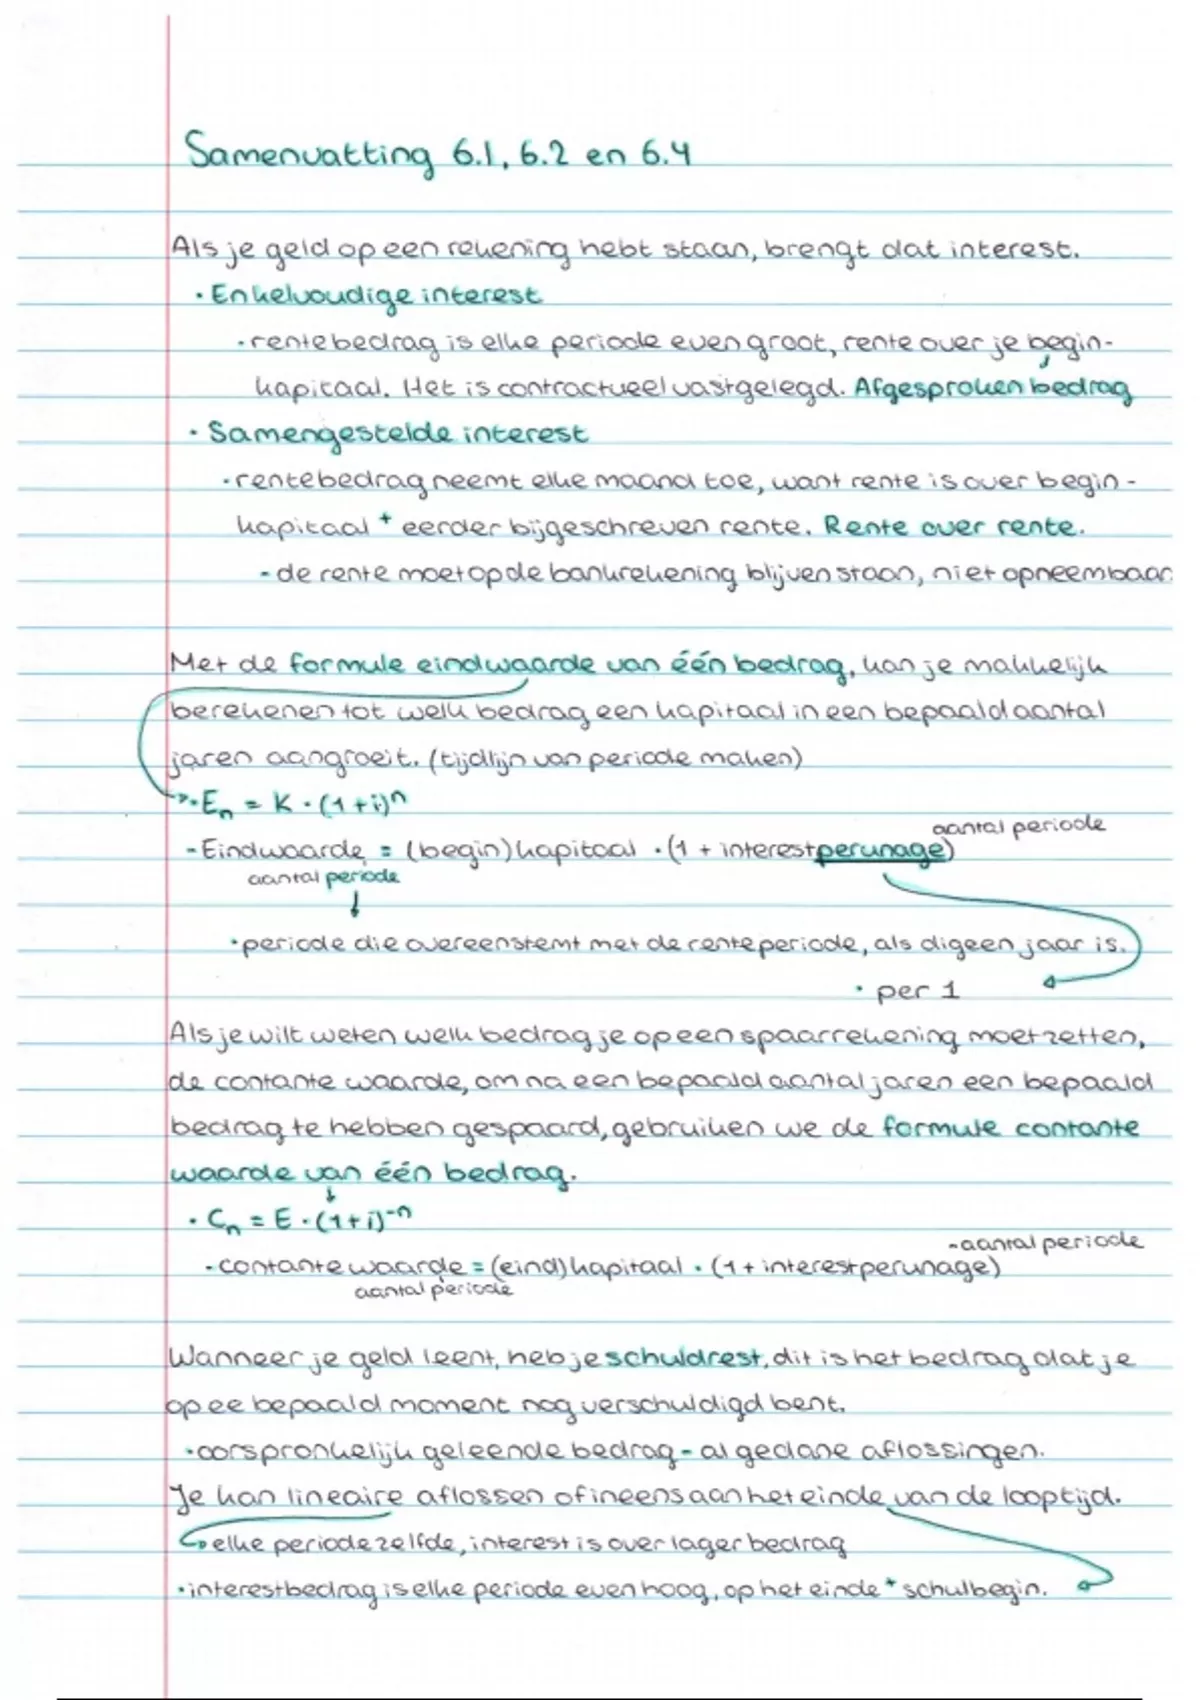 Samenvatting 6.1, 6.2 en 6.4
Als je geld op een rekening hebt staan, brengt dat interest.
· Enkelvoudige interest
· rentebedrag is elke periode even groot, rente over je begin-
kapitaal. Het is contractueel vastgelegd. Afgesproken bedrag
· Samengestelde interest
· rentebedrag neemt elke maand toe, want rente is over begin-
kapitaal + eerder bijgeschreven rente. Rente over rente.
- de rente moet op de bankrekening blijven staan, niet opneembaar
Met de formule eindwaarde van één bedrag, kan je makkelijk
berekenen tot welk bedrag een kapitaal in een bepaald aantal
jaren aangroeit. (tijdlijn van periode maken)
· Eₙ = K · (1+i)ⁿ
aantal periode
- Eindwaarde = (begin)kapitaal · (1 + interestperunage)
aantal periode
· periode die overeenstemt met de renteperiode, als dig een jaar is.
· per 1
Als je wilt weten welk bedrag je op een spaarrekening moet zetten,
de contante waarde, om na een bepaald aantal jaren een bepaald
bedrag te hebben gespaard, gebruiken we de formule contante
waarde van één bedrag.
· Cₙ = E · (1+i)⁻ⁿ
-aantal periode
- contante waarde = (eind)kapitaal · (1 + interestperunage)
aantal periode
Wanneer je geld leent, heb je schuldrest, dit is het bedrag dat je
op ee bepaald moment nog verschuldigd bent.
· oorspronkelijk geleende bedrag - al gedane aflossingen.
Je kan lineaire aflossen of ineens aan het einde van de looptijd.
elke periode zelfde, interest is over lager bedrag
· interestbedrag is elke periode even hoog, op het einde + schulbegin.